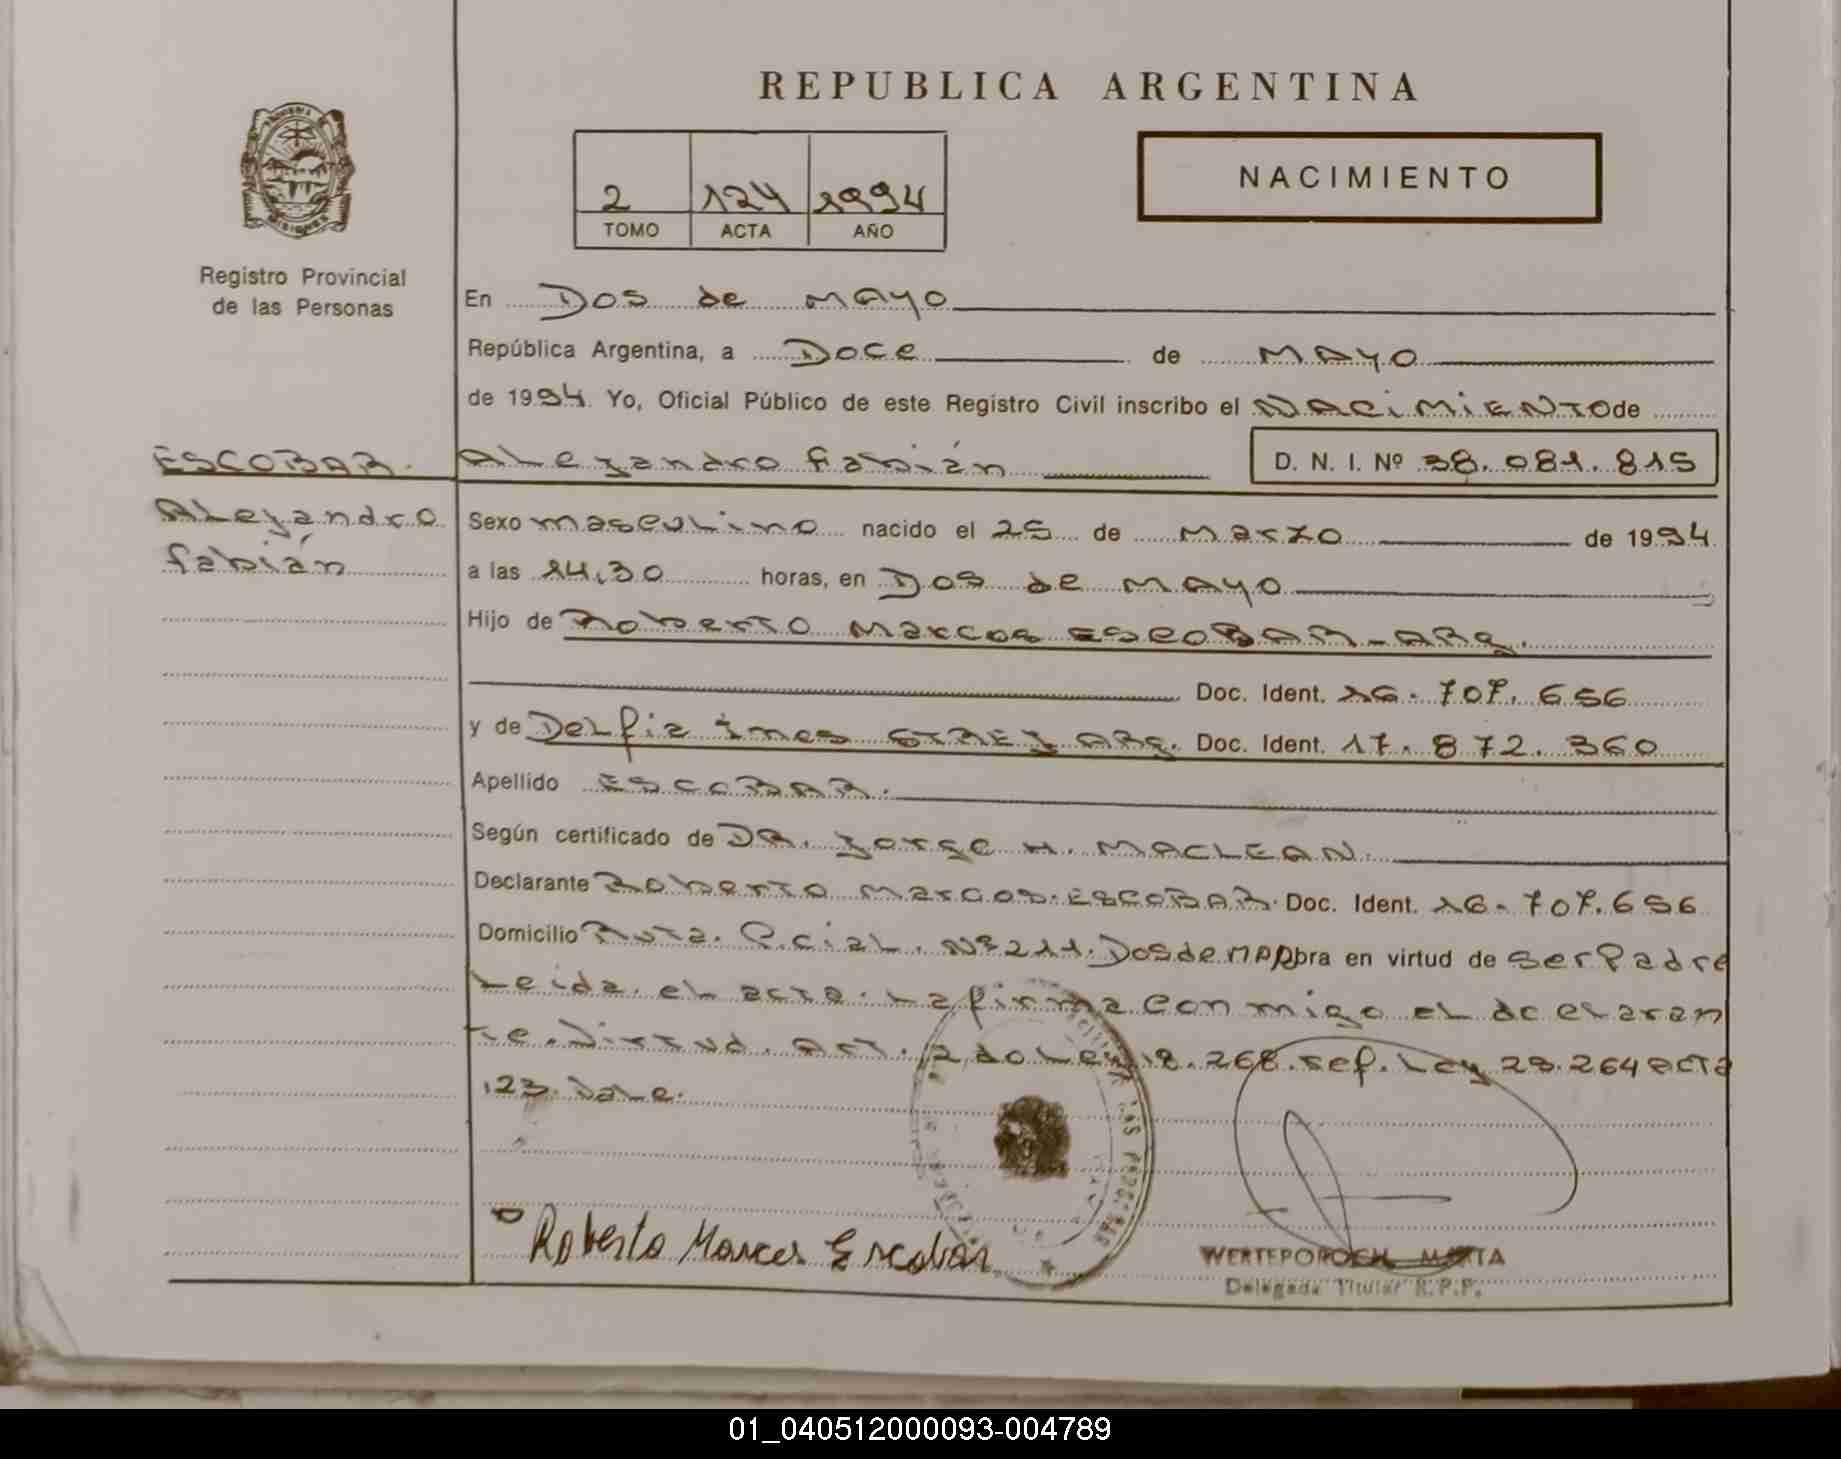 REPUBLICA ARGENTINA
NACIMIENTO
2 124 1994
TOMO ACTA AÑO
MISIONES
Registro Provincial
de las Personas
En Dos de MAyo
República Argentina, a Doce de MAyo
de 1994. Yo, Oficial Público de este Registro Civil inscribo el NACiMiENTO de
ESCOBAR. Alejandro fabián D. N. I. Nº 38.081.815
Alejandro
fabián
Sexo masculino nacido el 25 de Marzo de 1994
a las 14,30 horas, en Dos de MAyo
Hijo de Roberto Marcos ESCOBAR_ARg.
Doc. Ident. 16.707.656
y de Delfia Ines ARg. Doc. Ident. 17.872.360
Apellido ESCOBAR.
Según certificado de DR. Jorge H. MACLEAN.
Declarante Roberto Marcos. ESCOBAR. Doc. Ident. 16.707.656
Domicilio Ruta. P.cial. Nº 211. Dos de MAyo obra en virtud de ser Padre
Leida. el acta. La firma con migo el declaran
te. Virtud. Art. 2do Ley 18.268. ref. Ley 23.264 acta
123. Vale.
Roberto Marcos Escobar
WERTEPOROCH MARTA
Delegada Titular R.P.P.
01_040512000093-004789